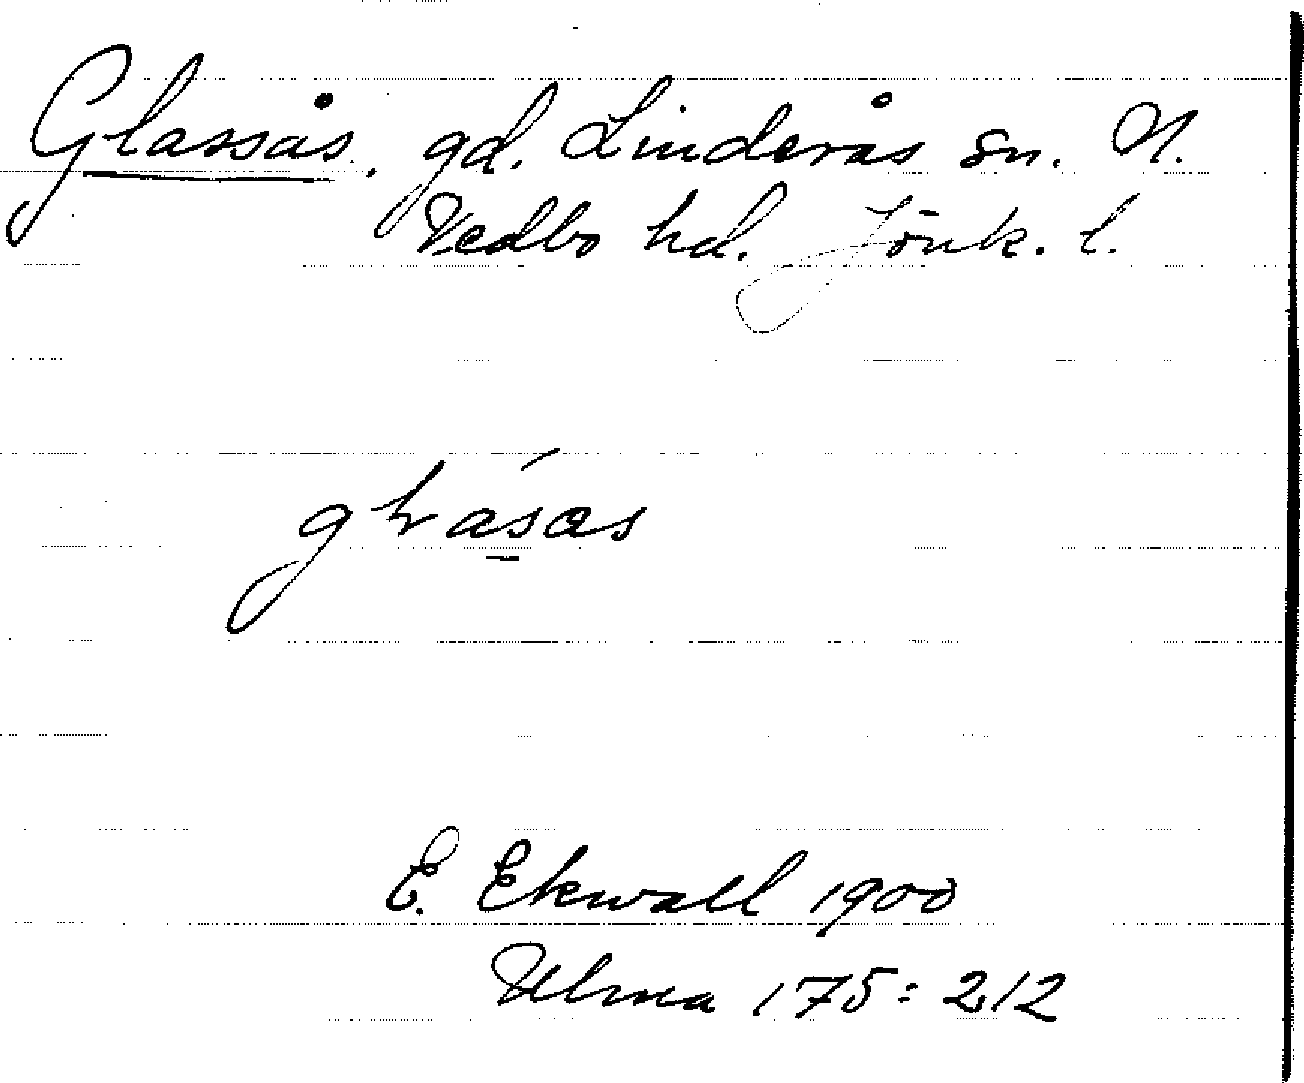 Glassås, gd. Linderås sn. N.
Vedbo hd. Jönk. l.
E. Ekwall 1900
Ulma 175:212